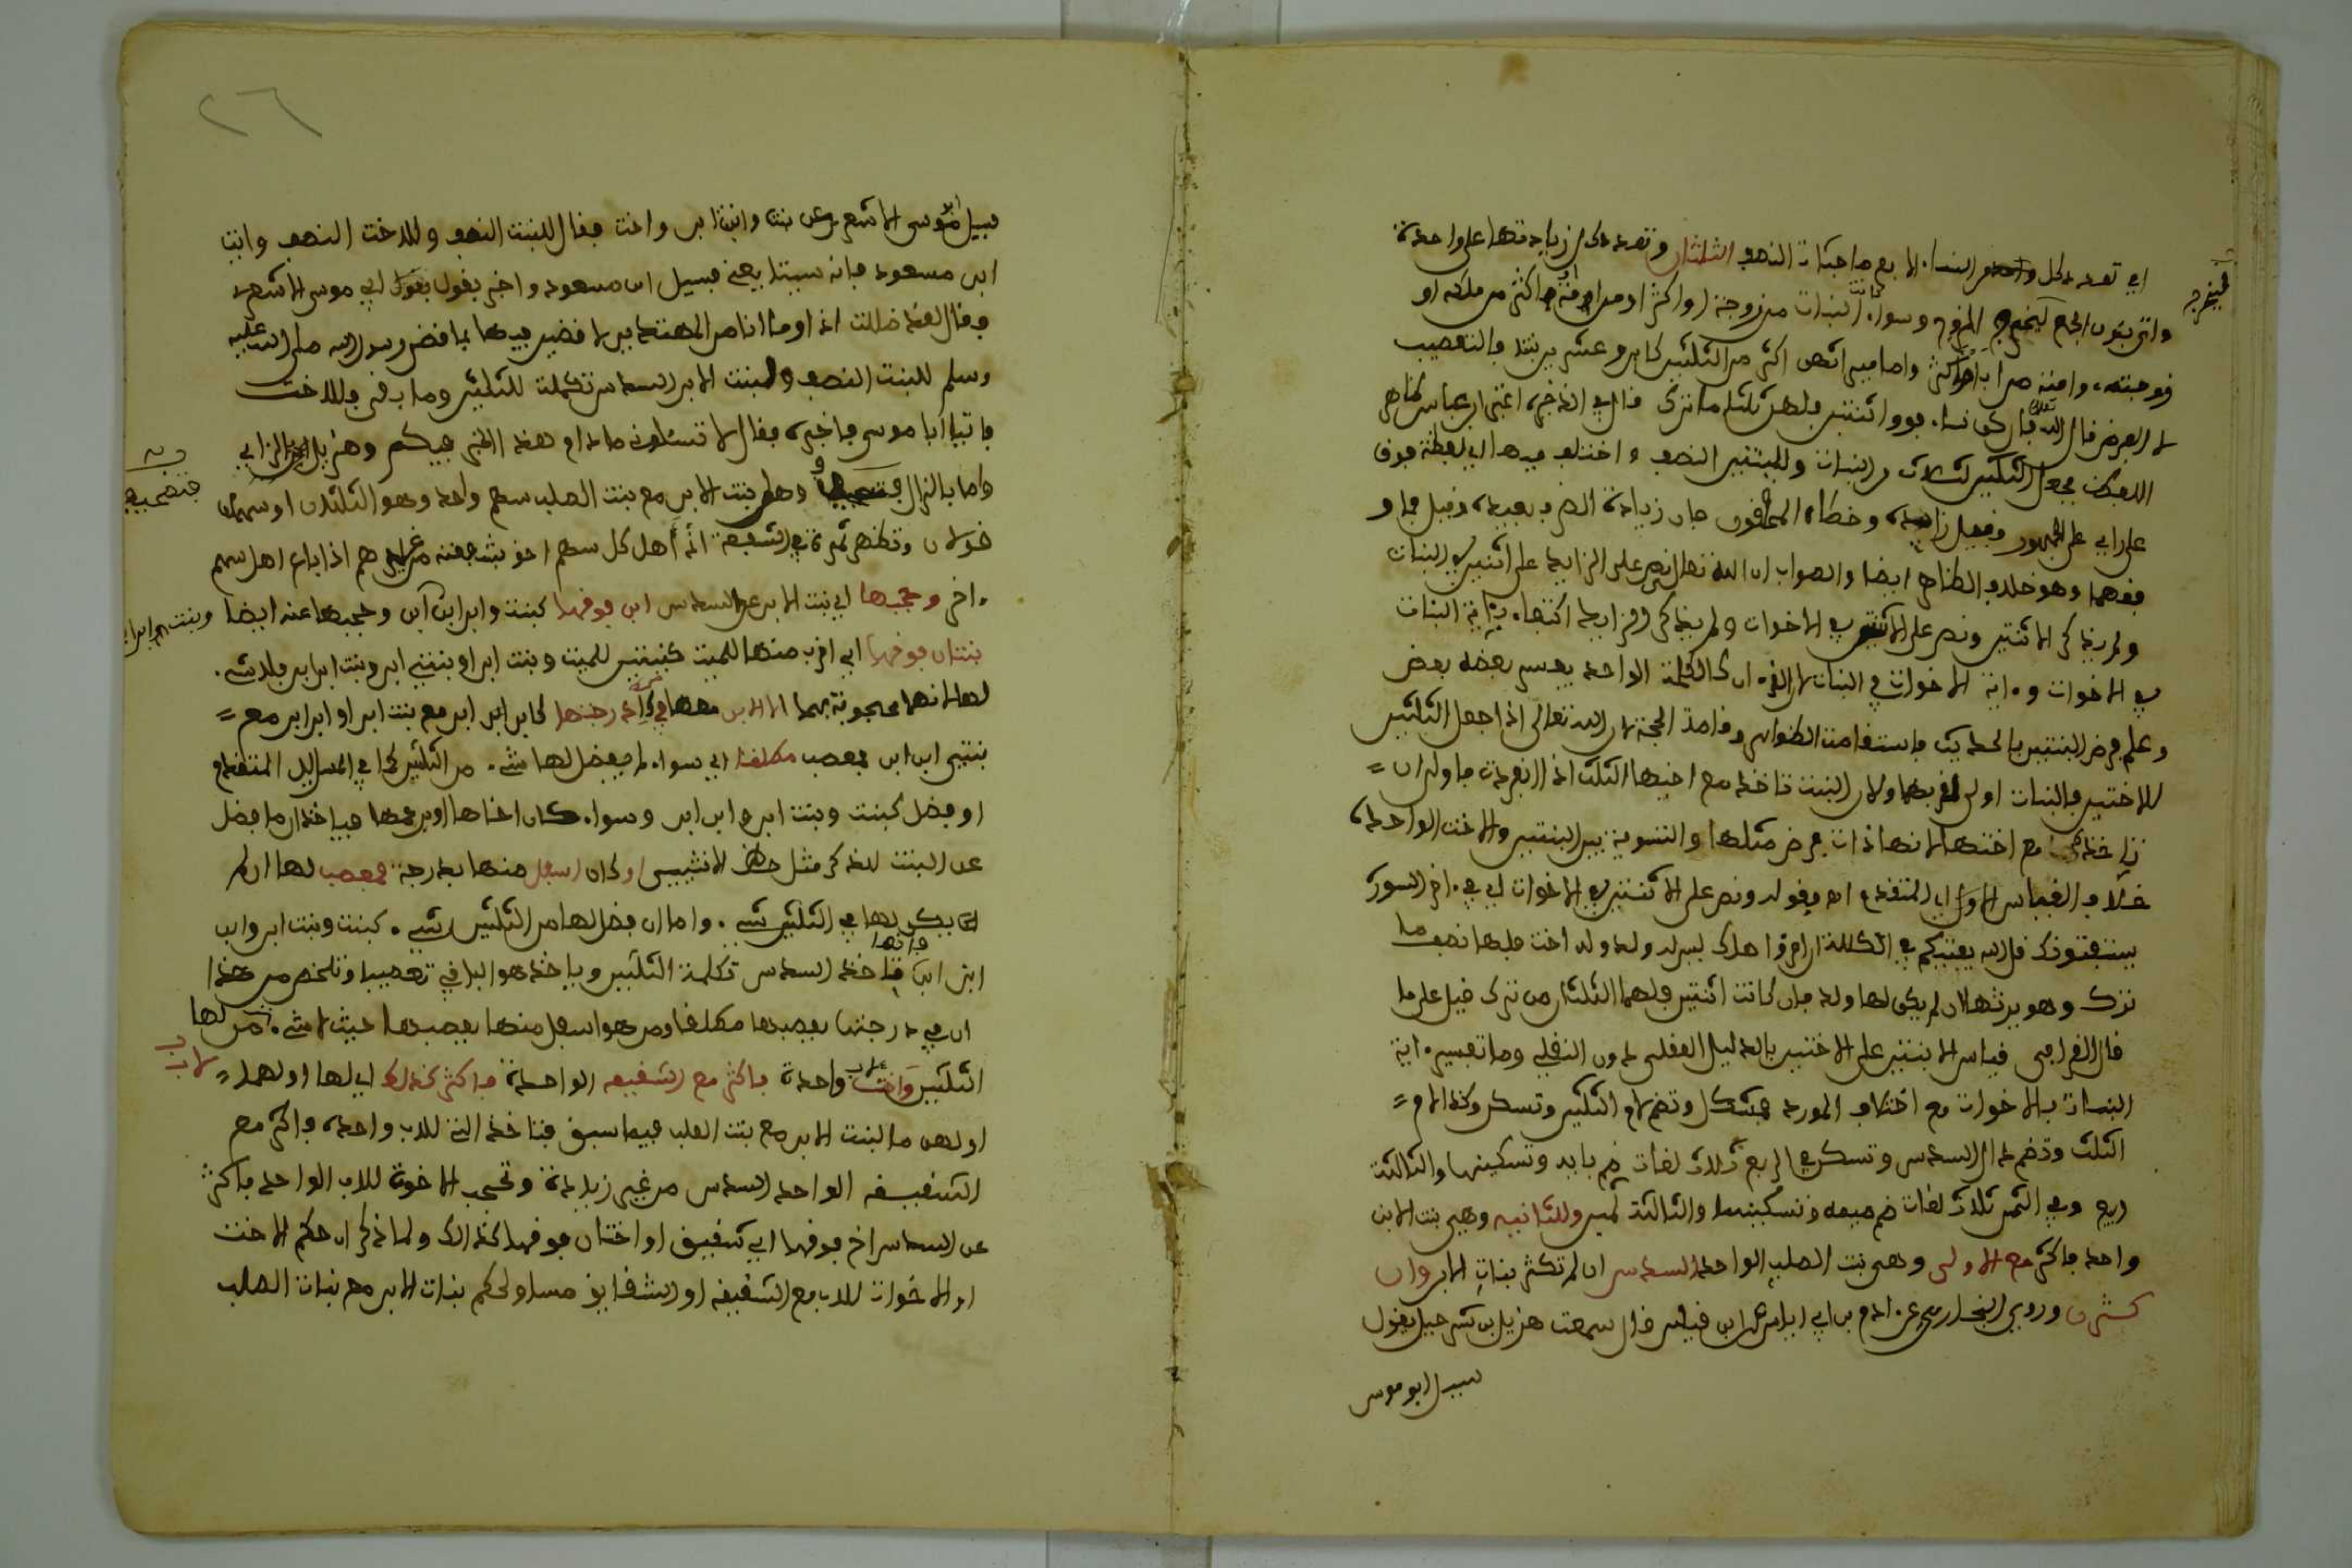 اي تعدد كل واحد من النساء الا بع صاحبات النصف الثلثان وتعدد كل زيادتها على واحدة
واتي بنون الجمع ليخرج الزوج وسواء كانت البنات من زوجة او اكثر او من امة فاكثر من ملكه او
زوجته وامته من اب فاكثر واما ميراثهن اكثر من الثلثين كابن وعشرين بنتا فبالتعصيب
لا الفرض قال الله تعالى فان كن نساء فوق اثنتين فلهن ثلثا ما ترك قال في الذخيرة اغتر ابن عباس بظاهر
اللفظ فجعل الثلثين لثلاث من البنات وللبنتين النصف واختلف فيها اي لفظة فوق
على راي على الجمهور وقيل زايدة وخطاه المحققون فان زيادة الظرف بعيدة وقيل فما و
فوقهما وهو خلاف الظاهر ايضا والصواب ان الله تعالى نص على الزايد على اثنتين في البنات
ولم يذكر الاثنتين ونص على الاثنتين في الاخوات ولم يذكر الزايد اكتفاء بآية البنات
في الاخوات وءاية الاخوات في البنات لان القرءان كالكلمة الواحدة يفسر بعضه بعض
وعلم فرض البنتين بالحديث فاستقامت الظواهر وقامت الحجة لان الله تعالى اذا جعل الثلثين
للاختين فالبنات اولى لقربهما ولان البنت تاخذ مع اخيها الثلث اذا انفردت فاولى ان =
تاخذه مع اختها لانها ذات فرض مثلها والتسوية بين البنتين والاخت الواحدة
خلاف القياس الاول اي المتقدم اه وقوله ونص على الاثنتين في الاخوات اي في ءاخر السورة
يستفتونك قل الله يفتيكم في الكلالة ان امرؤا هلك ليس له ولد وله اخت فلها نصف ما
ترك وهو يرثها ان لم يكن لها ولد فان كانتا اثنتين فلهما الثلثان مما ترك قيل على ما
قال القرافي قياس الابنتين على الاختين بالدليل العقلي دون النقلي وما تفسير ءاية
البنات بالاخوات مع اختلاف المورد فمشكل وتضم لام الثلثين وتسكن وكذا لام =
الثلث وتضم دال السدس وتسكن في الربع ثلاث لغات ضم بايه وتسكينها والثالثة
ربيع وفي الثمن ثلاث لغات ضم ميمه وتسكينها والثالثة ثمين وللثانيه وهي بنت الابن
واحدة فاكثر مع الاولى وهي بنت الصلب الواحدة السدس ان لم تكثر بنات الابن وان
كثرن وروى البخاري عن ءادم بن ابي اياس عن ابن قيس قال سمعت هزيل بن شرحبيل يقول
سيل ابو موسى
٢٦
سيل ابو موسى الاشعري عن بنت وابنة ابن واخت فقال للبنت النصف وللاخت النصف وايت
ابن مسعود فانه سيتابعني فسيل ابن مسعود واخبر بقول ابي موسى الاشعري
فقال لقد ضللت اذا وما انا من المهتدين لاقضين فيها بما قضى رسول الله صلى الله عليه
وسلم للبنت النصف ولبنت الابن السدس تكملة للثلثين وما بقى فللاخت
فاتينا ابا موسى فاخبره فقال لا تسئلونى ما دام هذا الحبر فيكم وهزيل بالزاي
واما بالذال وهل بنت الابن مع بنت الصلب سهم واحد وهو الثلثان او سهمان
قولان وتظهر ثمرة في الشفعة انه اهل كل سهم احق بشفعته من غيرهم اذا باع اهل سهم
ءاخر وحجبها اي بنت الابن عن السدس ابن فوقها كبنت وابن ابن ابن وحجبها عنه ايضا وبنت ابن ابن
بنتان فوقها اي اقرب منها للميت كبنتين للميت وبنت ابن او بنتي ابن وبنت ابن ابن فلا شيء
لها لانها محجوبة بهما الا الابن معها في درجتها كابن ابن ابن مع بنت ابن او ابن ابن مع =
بنتي ابن ابن فمعصب مطلقا اي سواء لم يفضل لها شيء من الثلثين كما في المسايل المتقدمة
او فضل كبنت وبنت ابن وابن ابن وسواء كان اخاها او ابن عمها فياخذان ما فضل
عن البنت للذكر مثل حظ الانثيين او كان اسفل منها بدرجة فمعصب لها ان لم
يكن لها في الثلثين شيء واما ان فضل لها من الثلثين شيء كبنت وبنت ابن وابن
ابن ابن فانها تاخذ السدس تكملة الثلثين وياخذ هو الباقي تعصيبا وتلخص من هذا
ان من في درجتها يعصبها مطلقا ومن هو اسفل منها يعصبها حيث لا شيء لها من
الثلثين واخت لاب واحدة فاكثر مع الشقيقه الواحدة فاكثر كذلك اي لها او لهما =
او لهن ما لبنت الابن مع بنت الصلب فيما سبق فتاخذ التي للاب واحدة فاكثر مع
الشقيقة الواحدة السدس من غير زيادة وتحجب الاخوة للاب الواحدة فاكثر
عن السدس اخ فوقها اي شقيق او اختان فوقها كذلك ولما ذكر ان حكم الاخت
او الاخوات للاب مع الشقيقة او الشقايق مساو لحكم بنات الابن مع بنات الصلب